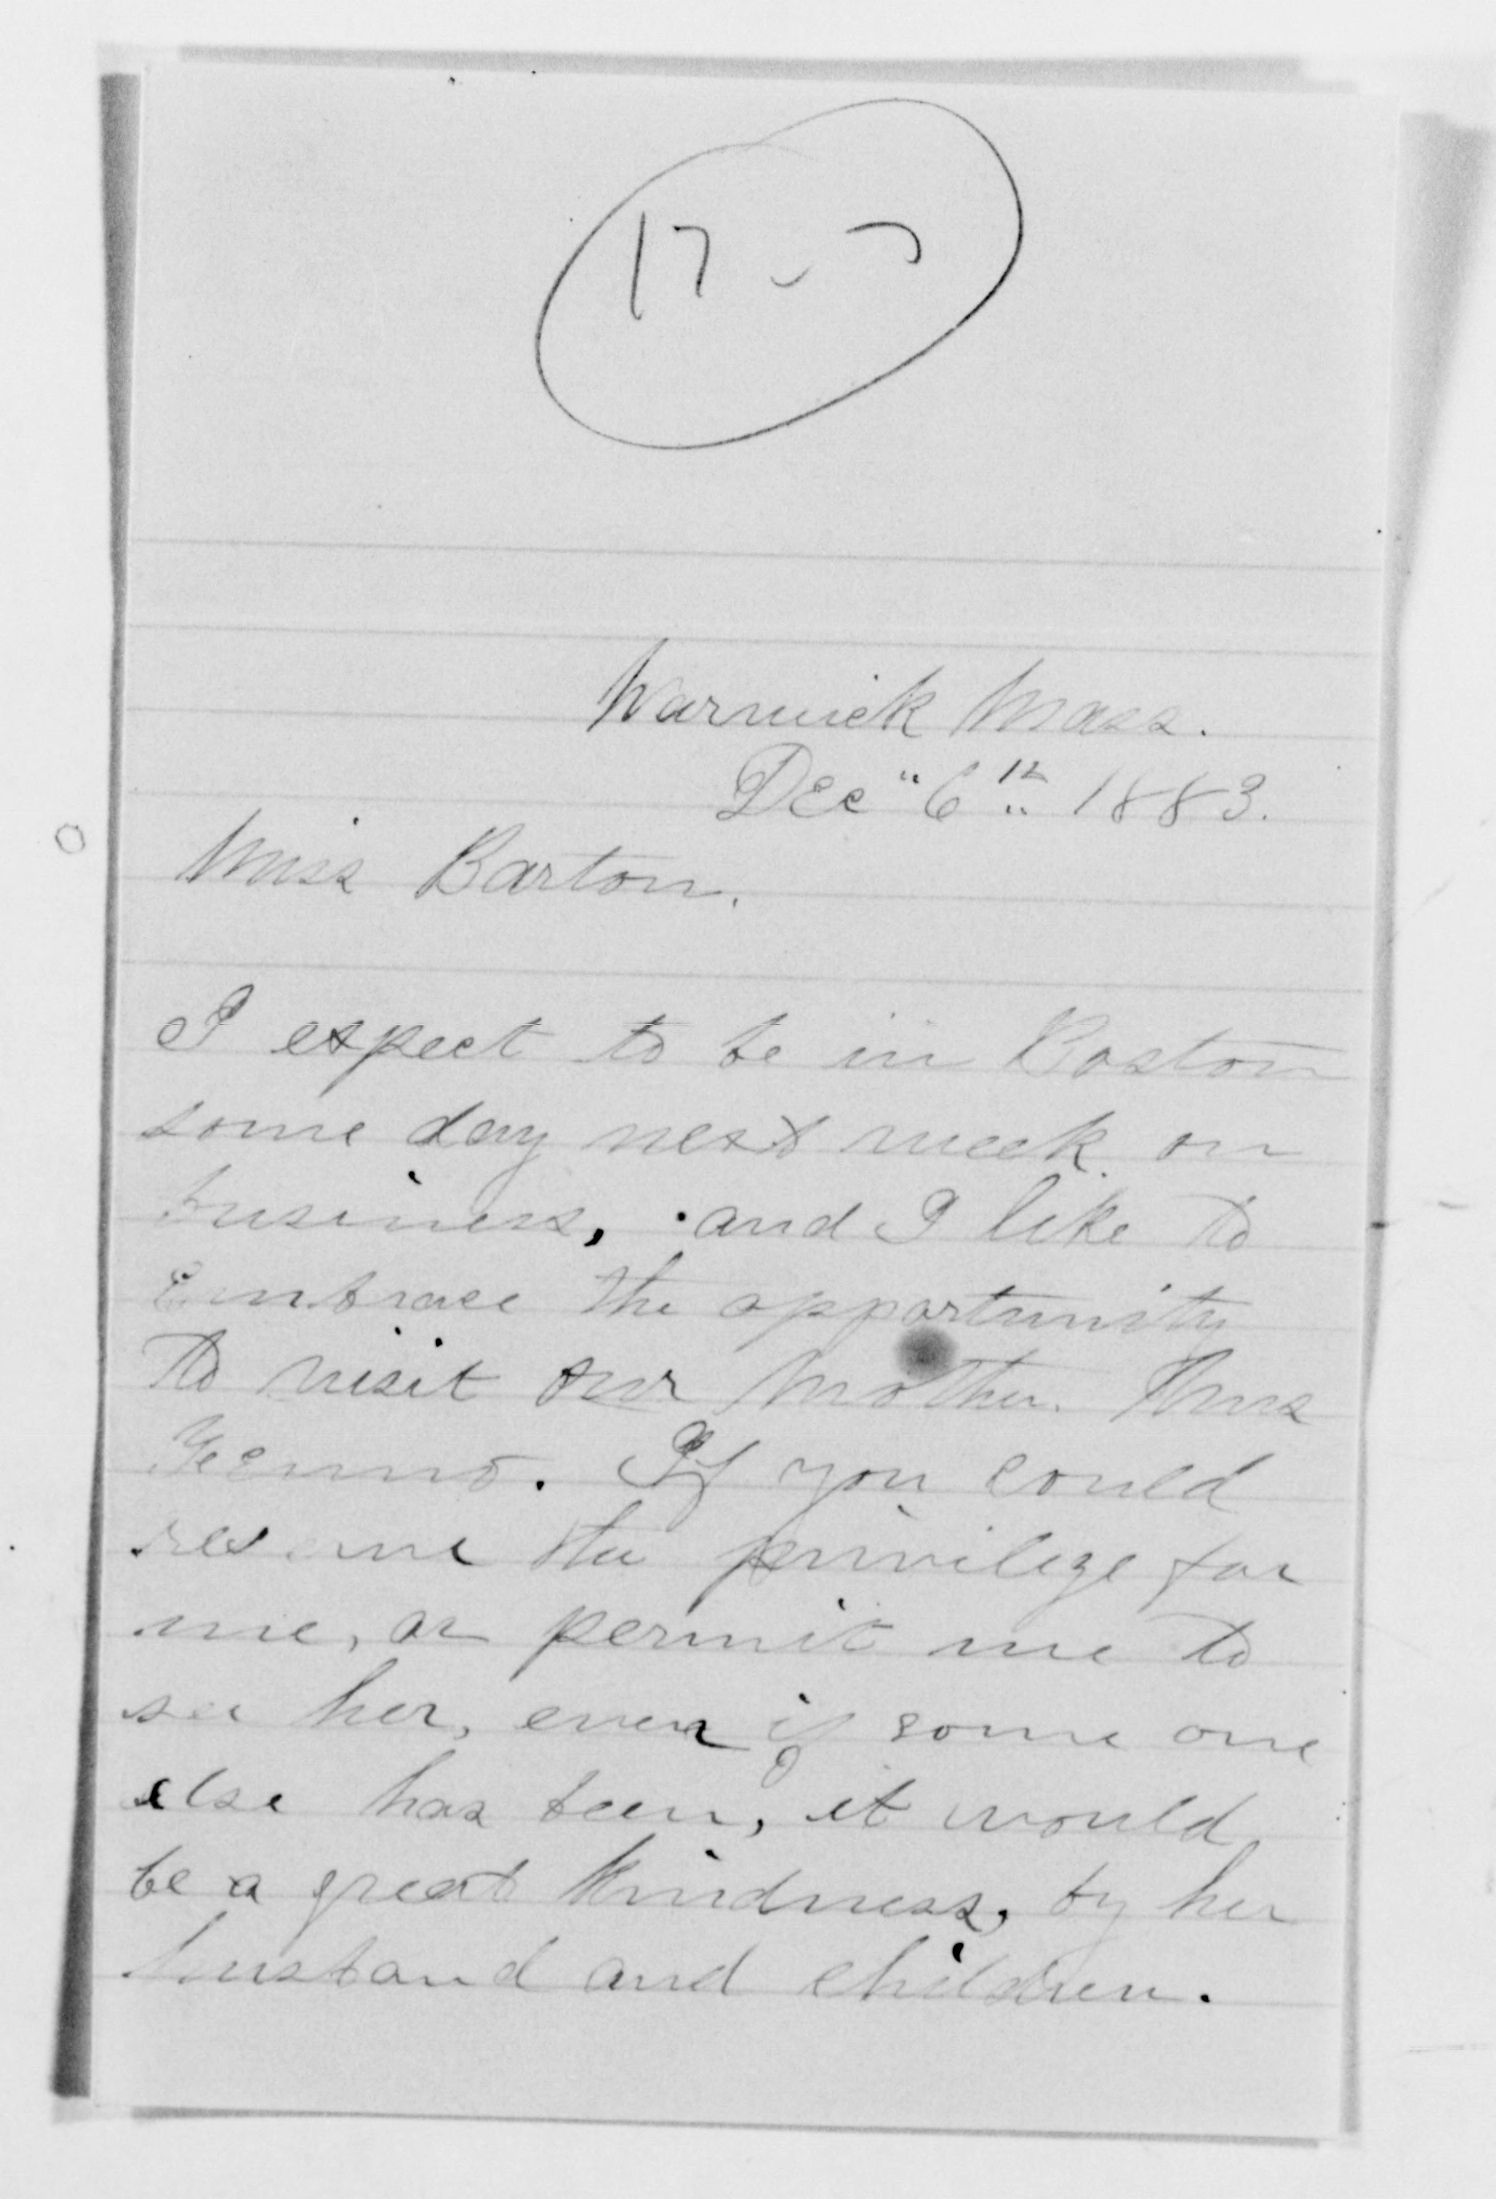 17
Warwick Mass.
Dec " 6th 1883.
Miss Barton.
I expect to be in Boston
some day next week on
business, and I like to
embrace the opportunity
to visit our mother. Mrs
If you could
reserve the privilege for
me, or permit me to
see her, even if some one
else has been, it would
be a great kindness, by her
husband and children.